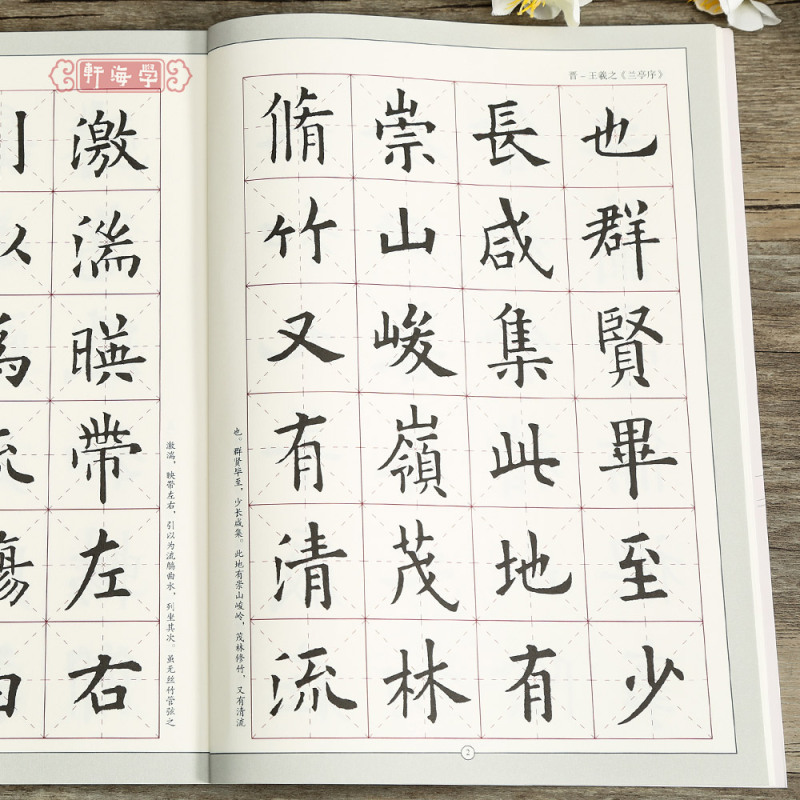 學海軒
晋－王羲之《兰亭序》
也群賢畢至少
長咸集此地有
崇山峻嶺茂林
脩竹又有清流
也。群贤毕至，少长咸集。此地有崇山峻岭，茂林修竹，又有清流
2
激湍暎帶左右
激湍，映带左右，引以为流觞曲水，列坐其次。虽无丝竹管弦之